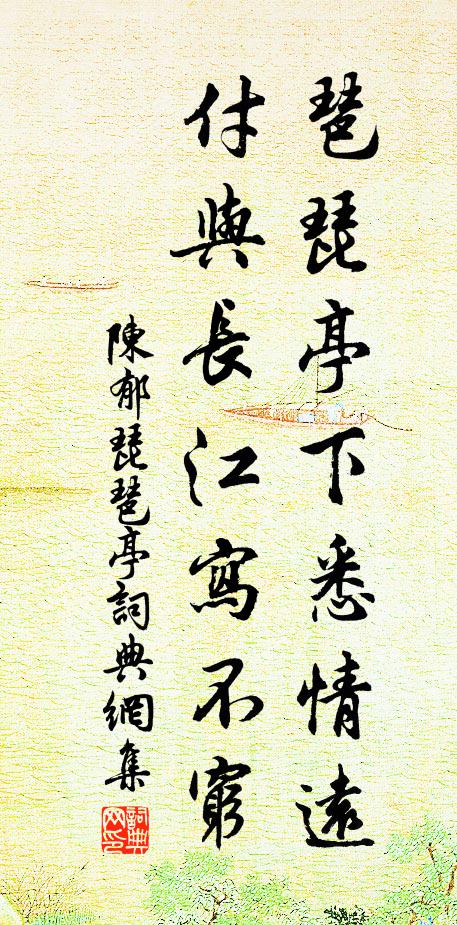 琶琵亭下悉情遠
付與長江寫不窮
陳郁琵琶亭詞典網集
詞典
网印